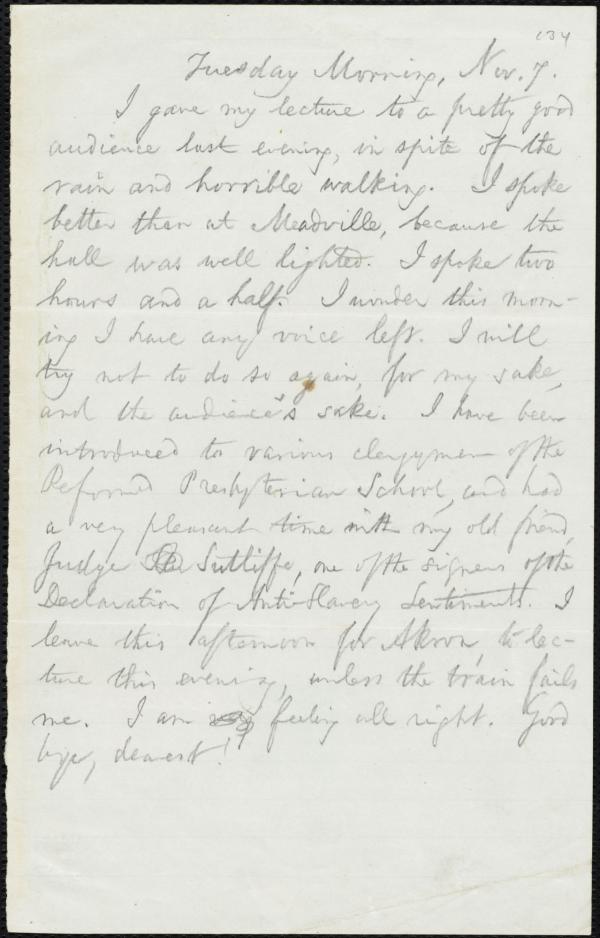 134
Tuesday Morning, Nov. 7.
I gave my lecture to a pretty good
audience last evening, in spite of the
rain and horrible walking. I spoke
better than at Meadville, because the
hall was well lighted. I spoke two
hours and a half. I wonder this morn-
ing I have any voice left. I will
try not to do so again, for my sake,
and the audience's sake. I have been
introduced to various clergymen of the
Reformed Presbyterian School, and had
a very pleasant time with my old friend,
Judge Sutliffe, one of the signers of the
Declaration of Anti-Slavery Sentiments. I
leave this afternoon for Akron, to lec-
ture this evening, unless the train fails
me. I am feeling all right. Good
bye, dearest!